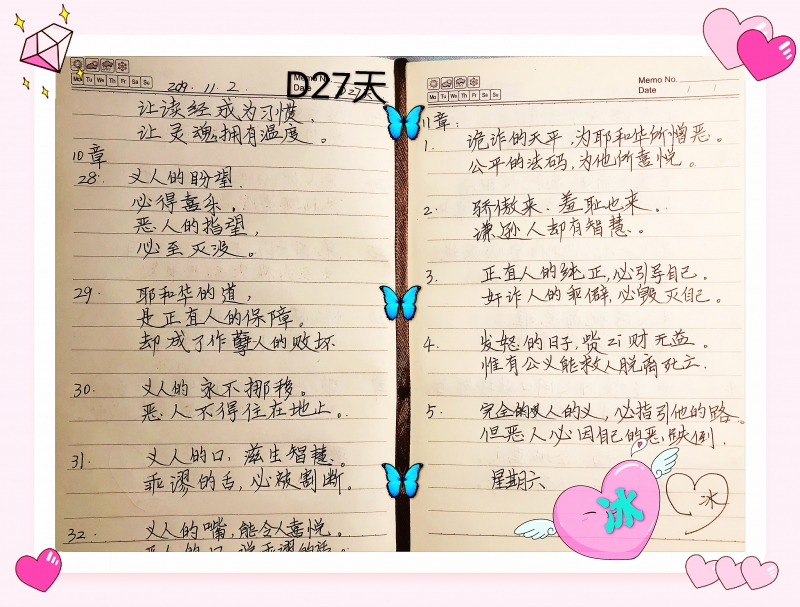 D27天
Mo Tu We Th Fr Sa Su
Memo No.
Date
2019. 11. 2.
让读经成为习惯，
让灵魂拥有温度。
10章
28. 义人的盼望，
必得喜乐，
恶人的指望，
必至灭没。
29. 耶和华的道，
是正直人的保障。
却成了作孽人的败坏
30. 义人的永不挪移。
恶人不得住在地上。
31. 义人的口，滋生智慧。
乖谬的舌，必被割断。
32 义人的嘴，能令人喜悦。
恶人的口，说乖谬的话。
Mo Tu We Th Fr Sa Su
Memo No.
Date / /
11章：
1. 诡诈的天平，为耶和华所憎恶。
公平的法码，为他所喜悦。
2. 骄傲来．羞耻也来。
谦逊人却有智慧。
3. 正直人的纯正，必引导自己。
奸诈人的乖僻，必毁灭自己。
4. 发怒的日子，赀zi财无益。
惟有公义能救人脱离死亡．
5. 完全的人的义，必指引他的路。
但恶人必因自己的恶跌倒．
星期六
冰
冰